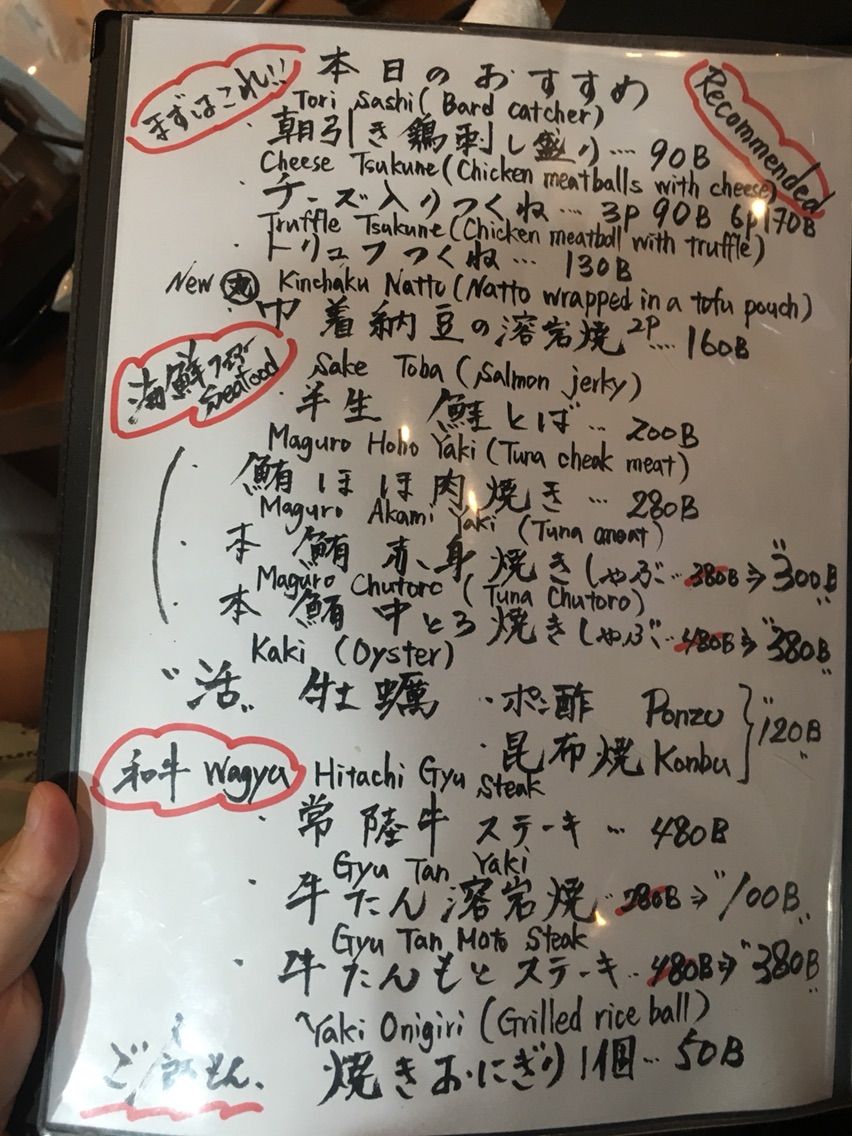 まずはこれ!! 本日のおすすめ Recommended
Tori Sashi (Bard catcher)
・朝引き鶏刺し盛り…. 90B
Cheese Tsukune (Chicken meatballs with cheese)
・チーズ入りつくね… 3p 90B 6p 170B
Truffle Tsukune (Chicken meatball with truffle)
・トリュフつくね… 130B
New Kinchaku Natto (Natto wrapped in a tofu pouch)
・巾着納豆の溶岩焼 2p…. 160B
海鮮フェアー Seafood
Sake Toba (Salmon jerky)
・半生 鮭とば… 200B
Maguro Hoho Yaki (Tuna cheak meat)
・鮪ほほ肉焼き… 280B
Maguro Akami Yaki (Tuna meat)
・本鮪赤身焼きしゃぶ… 380B ⇒ "300B"
Maguro Chutoro (Tuna Chutoro)
・本鮪中とろ焼きしゃぶ… 480B ⇒ "380B"
Kaki (Oyster)
"活" 牡蠣 ・ポン酢 Ponzu
・昆布焼 Konbu "120B"
和牛 Wagyu Hitachi Gyu Steak
・常陸牛ステーキ… 480B
Gyu Tan Yaki
・牛たん溶岩焼… 280B ⇒ "100B"
Gyu Tan Moto Steak
・牛たんもとステーキ… 480B ⇒ "380B"
Yaki Onigiri (Grilled rice ball)
ご飯もん、 焼きおにぎり1個… 50B